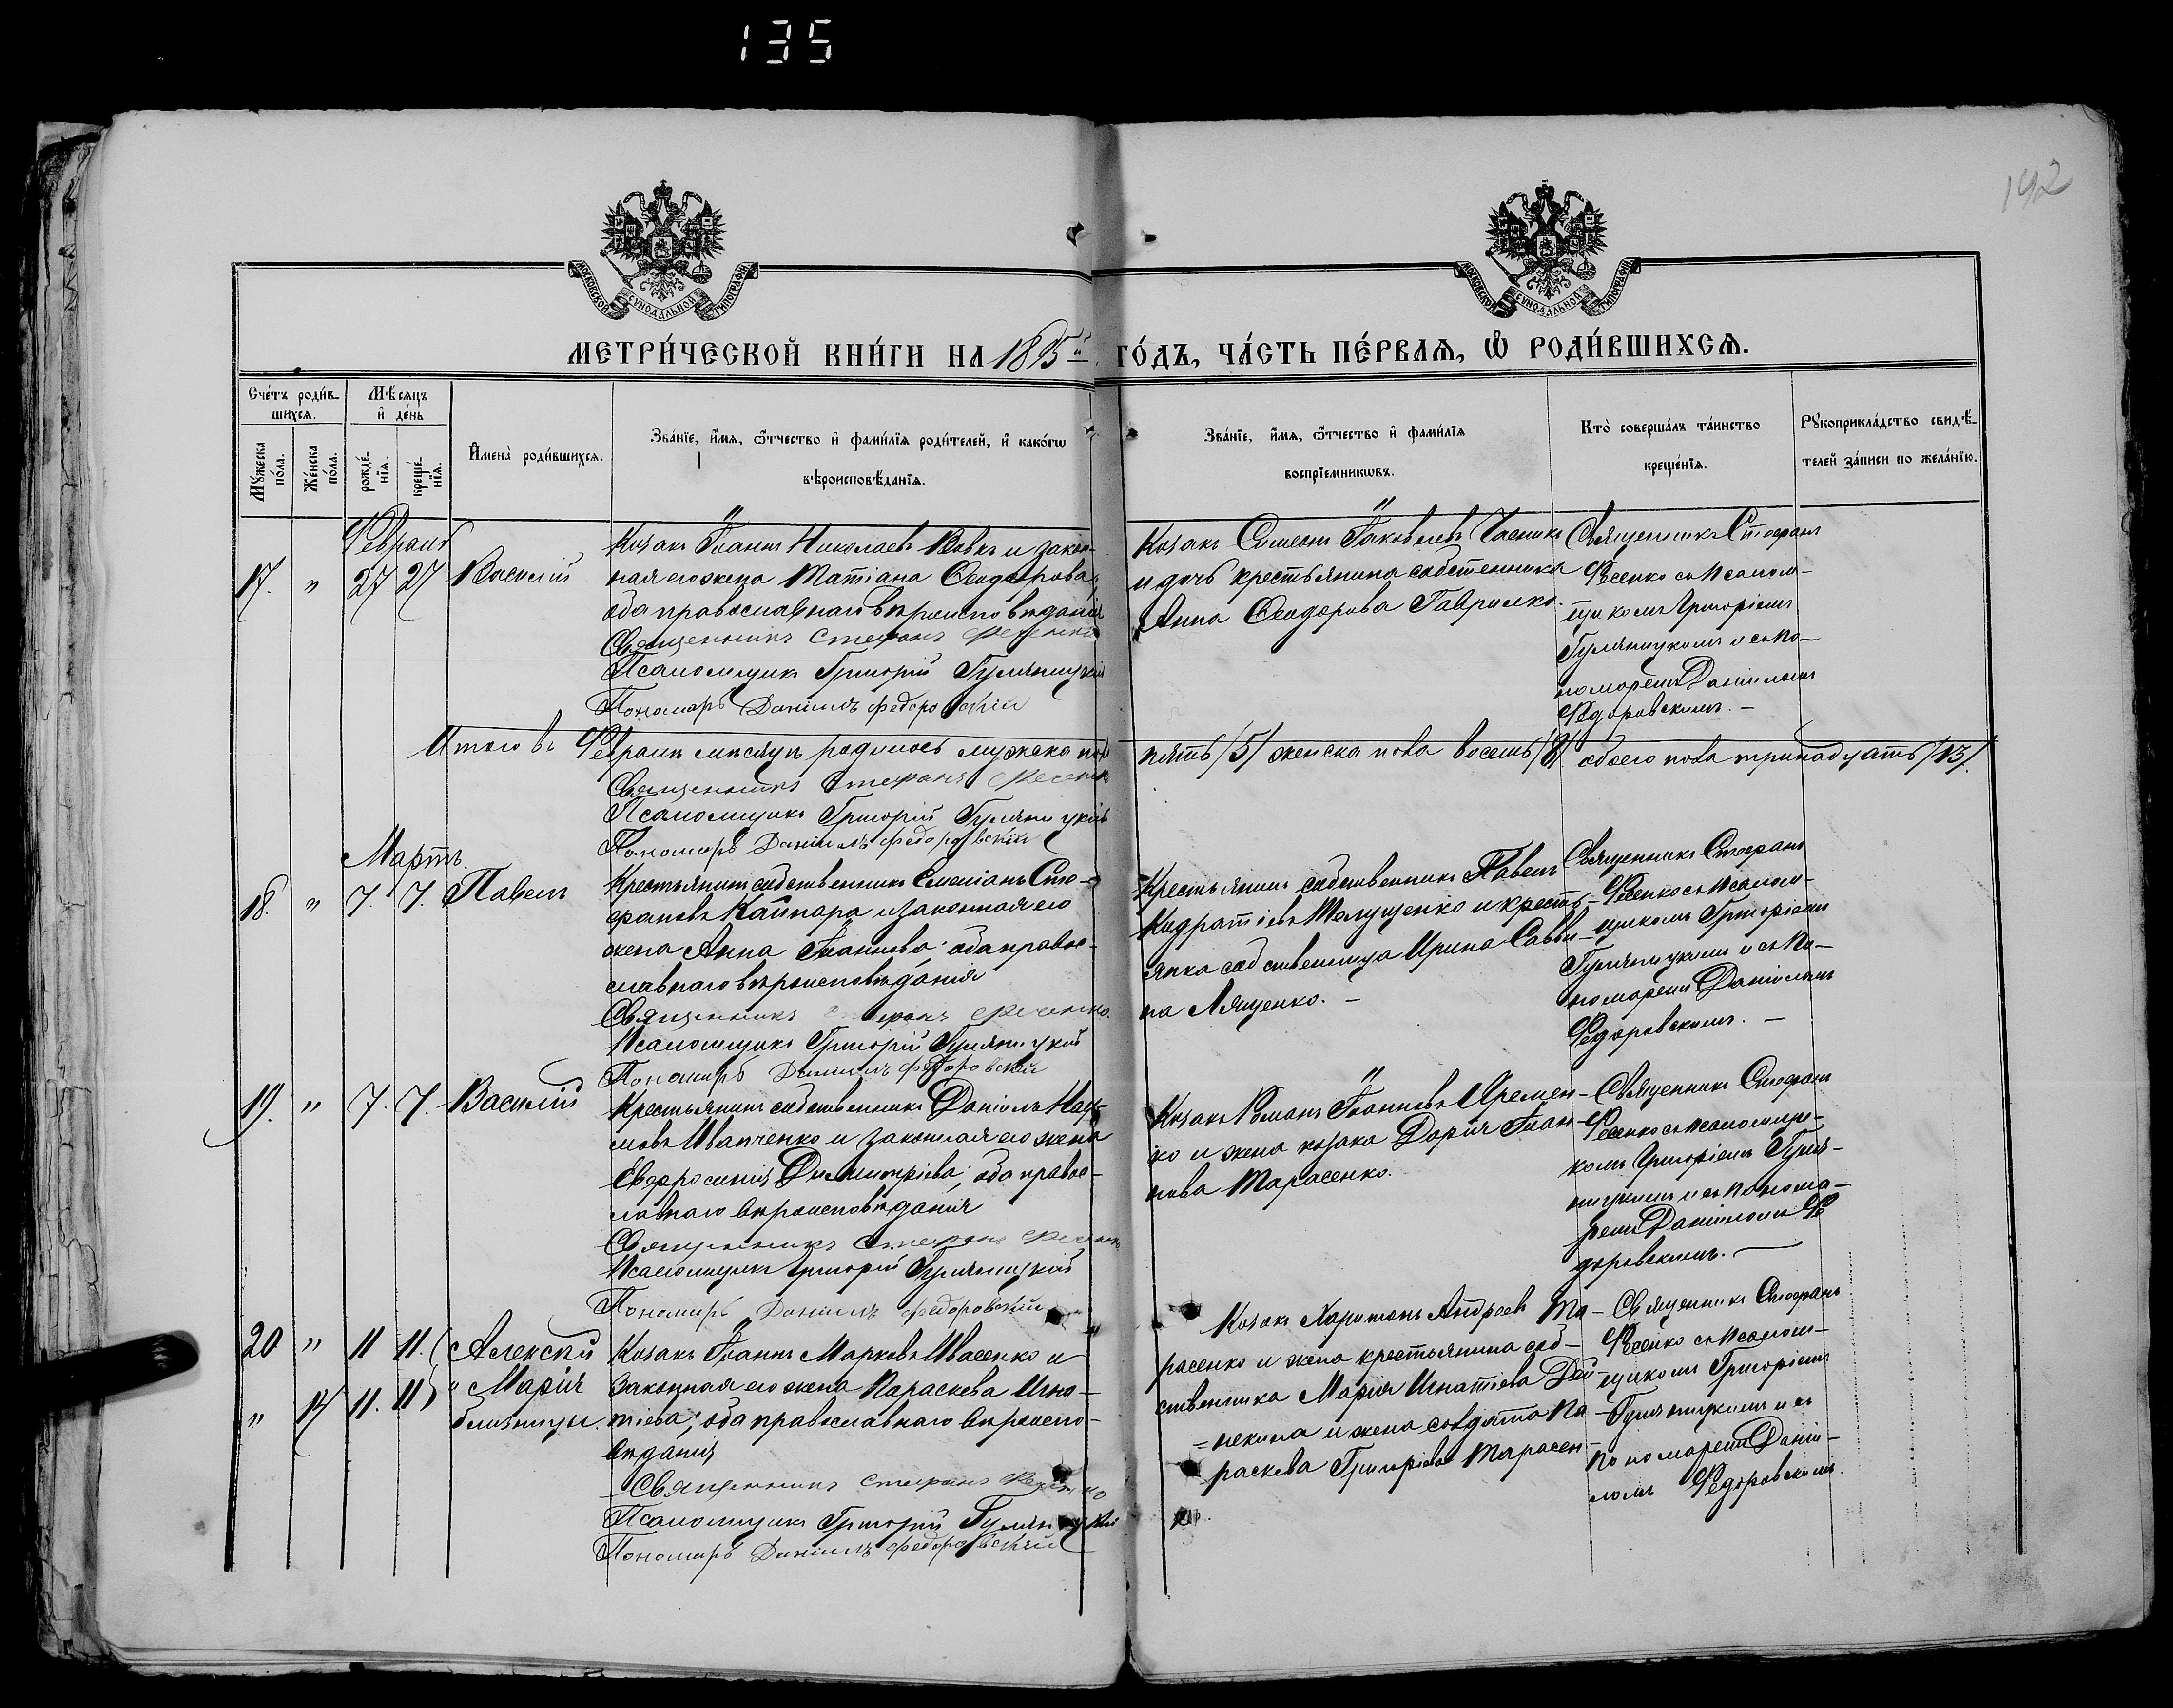 135
142
МОСКОВСКОЙ СѴНОДАЛЬНОЙ ТИПОГРАФІИ
МОСКОВСКОЙ СѴНОДАЛЬНОЙ ТИПОГРАФІИ
МЕТРИ́ЧЕСКОЙ КНИ́ГИ НА 1895й ГО́ДЪ, ЧА́СТЬ ПЕ́РВАѦ, Ѡ҆ РОДИ́ВШИХСѦ.
Сче́тъ роди́в-
шихсѧ.
Мѣ́сѧцъ
и҆ де́нь
Мꙋ́жеска
по́ла.
Же́нска
по́ла.
рожде́-
нїѧ.
креще́-
нїѧ.
И҆мена̀ роди́вшихсѧ.
Зва́нїе, и҆́мѧ, ѻ҆́тчество и҆ фами́лїѧ роди́телей, и҆ како́гѡ
вѣроисповѣ́данїѧ.
Зва́нїе, и҆́мѧ, ѻ҆́тчество и҆ фами́лїѧ
воспрїемникѡвъ.
Кто̀ соверша́лъ та́инство
креще́нїѧ.
Рꙋкоприкла́дство свидѣ́-
телей за́писи по жела́нїю.
Февраль
17. " 27. 27 Василій
Козакъ Іоаннъ Николаевъ Вовкъ и закон-
ная его жена Татіана Ѳеодорова;
оба православнаго вѣроисповѣданія
Священникъ Стефанъ Фесенко
Псаломщикъ Григорій Гуляницкій
Пономарь Даніилъ Федоровскій
Козакъ Симеонъ Іаковлевъ Часникъ
и дочь крестьянина собственника
Анна Ѳеодорова Гаврилко.
Священникъ Стефанъ
Фесенко съ псалом-
щикомъ Григоріемъ
Гуляницкимъ и съ по-
номаремъ Даніиломъ
Федоровскимъ. -
Итого въ Февралѣ мѣсяцѣ родилось мужеска пола пять /5/ женска пола восемь /8/ обоего пола тринадцать /13/.
Священникъ Стефанъ Фесенко
Псаломщикъ Григорій Гуляницкій
Пономарь Даніилъ Федоровскій
Мартъ.
18. " 7. 7. Павелъ
Крестьянинъ собственникъ Емеліанъ Сте-
фановъ Кайпара и законная его
жена Анна Іоаннова; оба правос-
лавнаго вѣроисповѣданія
Священникъ Стефанъ Фесенко.
Псаломщикъ Григорій Гуляницкій
Пономарь Даніилъ Федоровскій
Крестьянинъ собственникъ Павелъ
Кидратіевъ и кресть-
янка собственница Ирина Савви-
на Лященко. -
Священникъ Стефанъ
Фесенко съ псалом-
щикомъ Григоріемъ
Гуляницкимъ и съ по-
номаремъ Даніиломъ
Федоровскимъ. -
19. " 7. 7. Василій
Крестьянинъ собственникъ Даніилъ Нау-
мовъ Иванченко и законная его жена
Евфросинія Димитріева; оба правос-
лавнаго вѣроисповѣданія
Священникъ Стефанъ Фесенко
Псаломщикъ Григорій Гуляницкій
Пономарь Даніилъ Федоровскій
Козакъ Романъ Іоанновъ Яремен-
ко и жена козака Дарія Іоан-
нова Тарасенко.
Священникъ Стефанъ
Фесенко съ псаломщи-
комъ Григоріемъ Гуля-
ницкимъ и съ понома-
ремъ Даніиломъ Фе
доровскимъ. -
20 " 11 11. Алексѣй
" 14 11. 11 " Марія
близнецы.
Козакъ Іоаннъ Марковъ Ивасенко и
законная его жена Параскева Игна-
тіева; оба православнаго вѣроиспо-
вѣданія
Священникъ Стефанъ Фесенко
Псаломщикъ Григорій Гуляницкій
Пономарь Даніилъ Федоровскій
Козакъ Харитонъ Андреевъ Та-
расенко и жена крестьянина соб-
ственника Марія Игнатіева Дей-
=некина и жена солдата Па-
раскева Григоріева Тарасен-
ко.
Священникъ Стефанъ
Фесенко съ псалом-
щикомъ Григоріемъ
Гуляницкимъ и съ
пономаремъ Даніи-
ломъ Федоровскимъ.